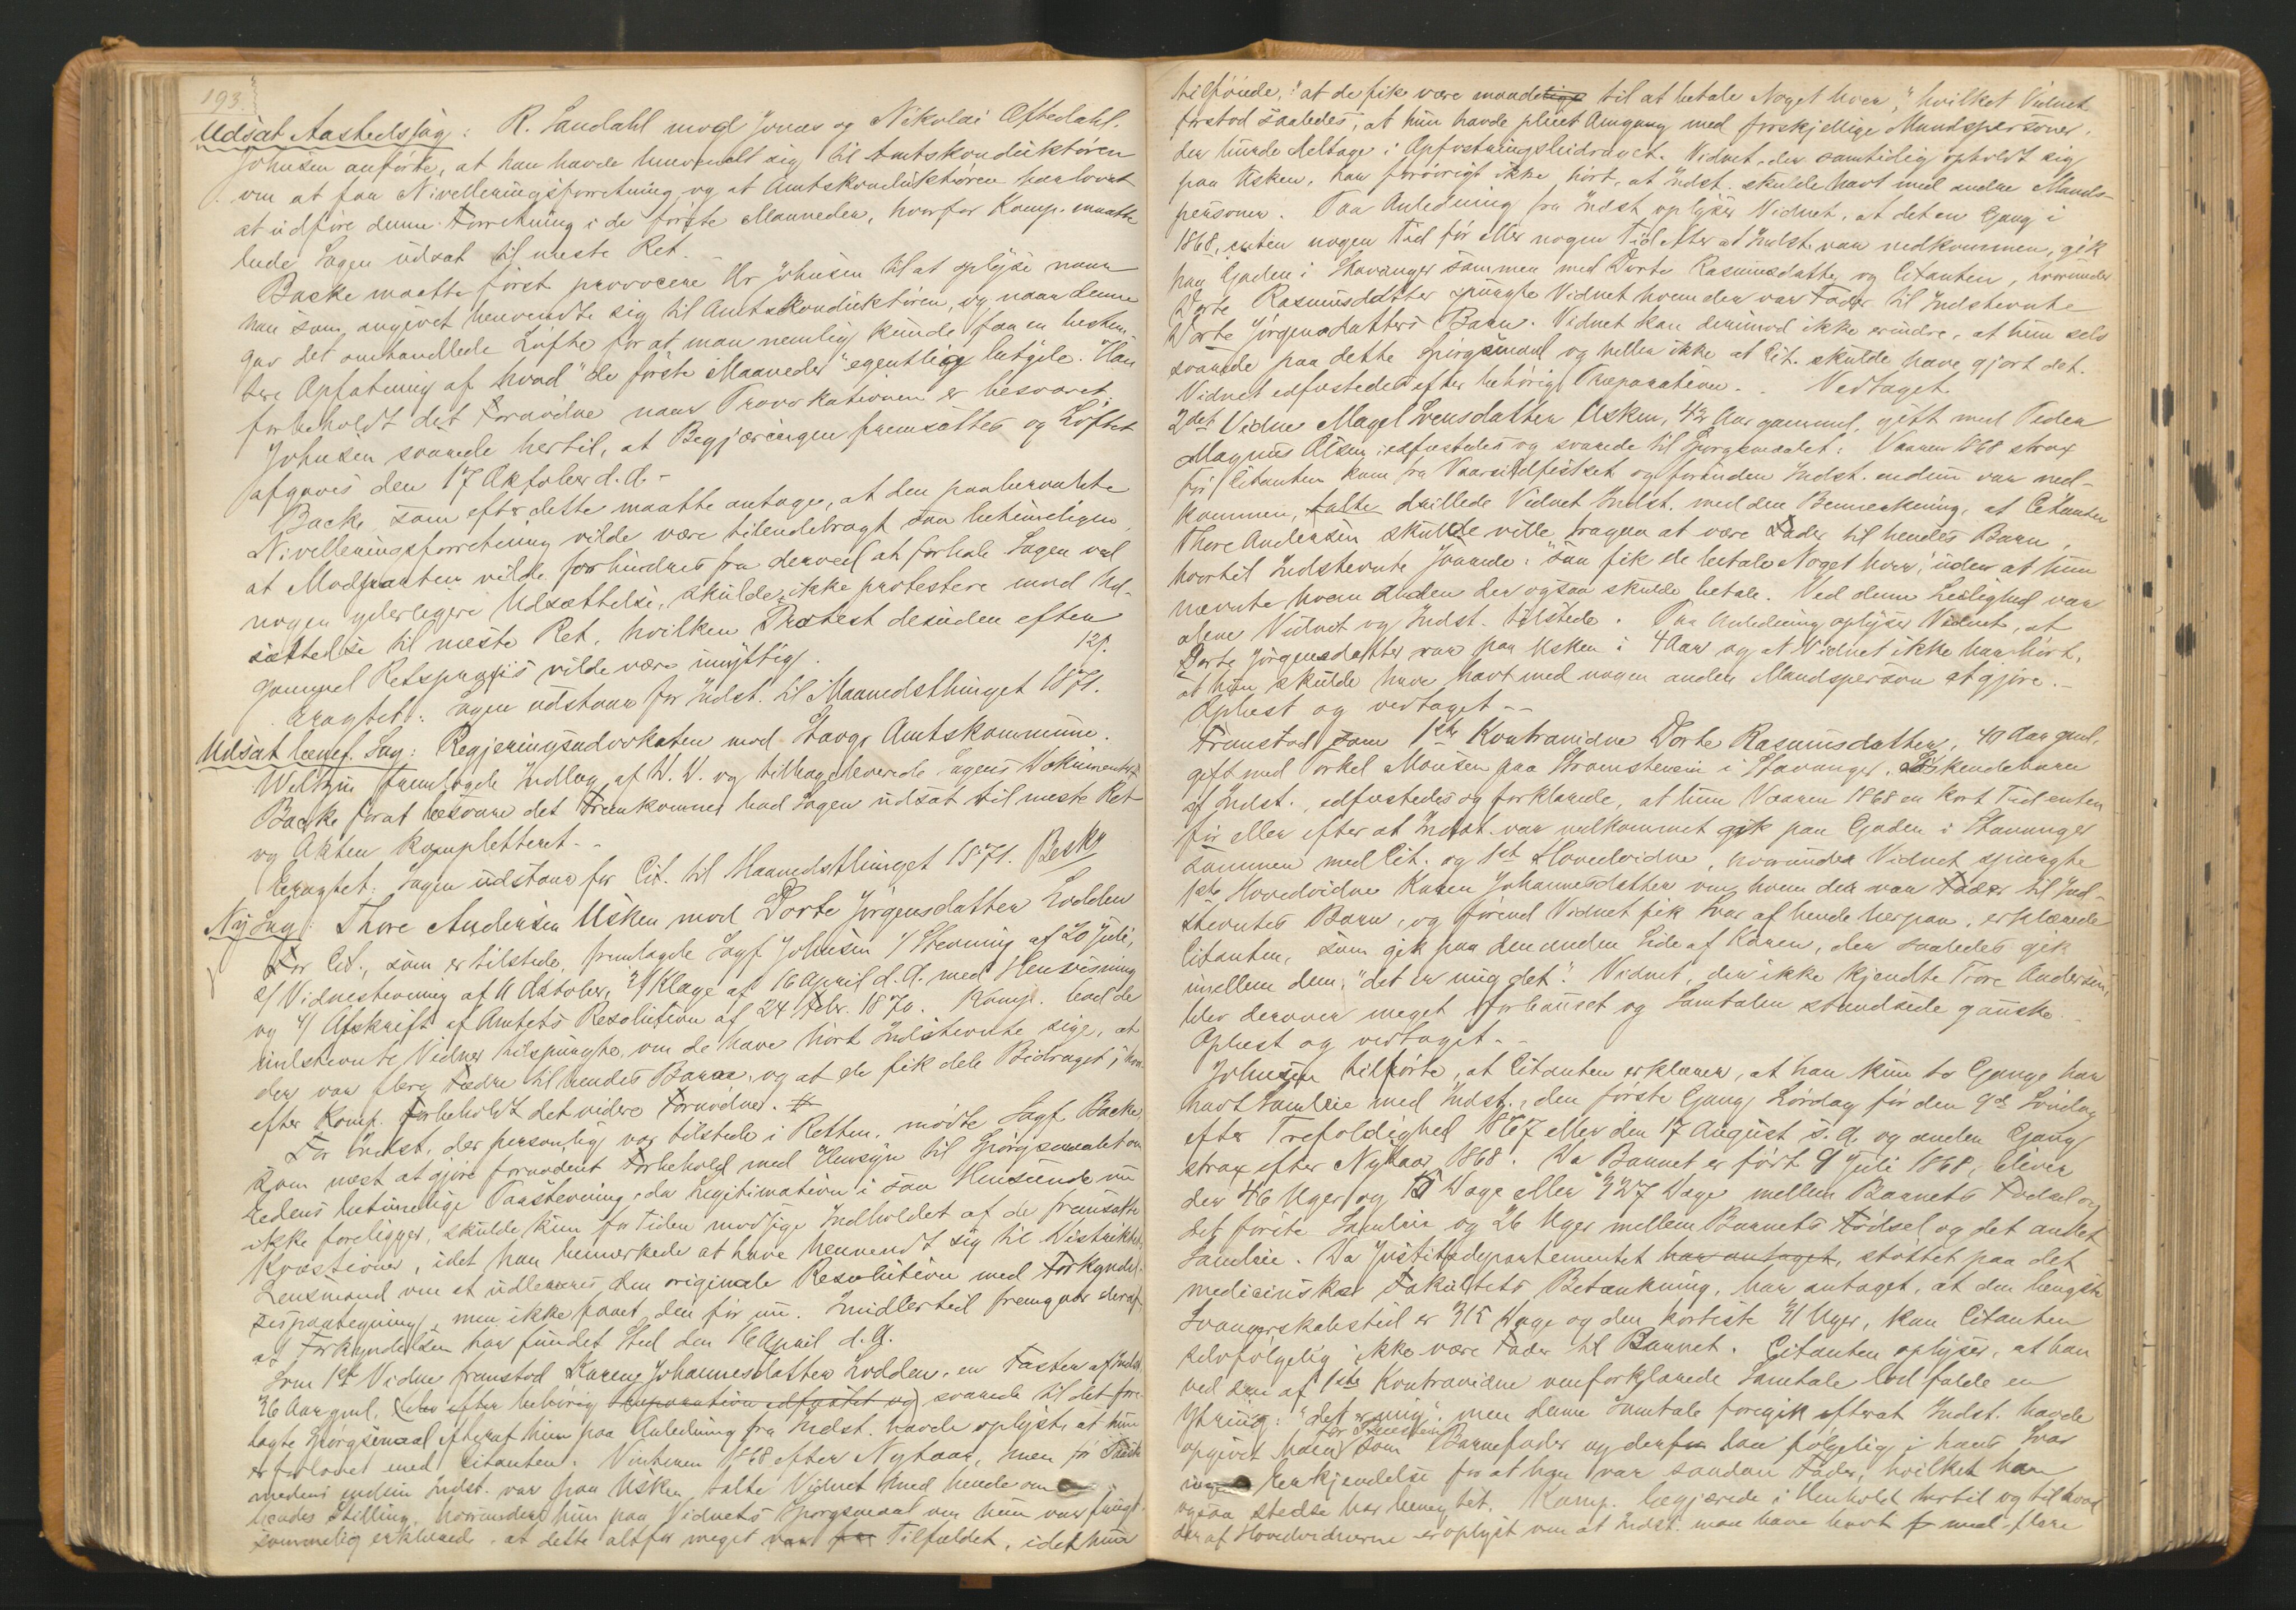 193.
Udsat Aastedssag: R. Sandahl mod Jonas og Nikolai Oftedahl.
Johnsen anførte, at han havde henvendt sig til Amtskonduktøren
om at faa Nivelleringsforretning og at Amtskonduktøren har lovet
at udføre denne Forretning i de første Maaneder, hvorfor Komp. maatte
bede Sagen udsat til næste Ret.
Backe maatte først provocere Hr Johnsen til at oplyse naar
han som angivet henvendte sig til Amtskonduktøren, og naar denne
gav det omhandlede Løfte for at man nemlig kunde faa en bestem-
tere Opfatning af hvad "de første Maaneder" egentlig betyde. Han
forbeholdt det Fornødne naar Provokationen er besvaret.
Johnsen svarede hertil, at Begjæringen fremsattes og Løftet
afgaves den 17 Oktober d. A. -
Backe som efter dette maatte antage, at den paaberaabte
Nivelleringsforretning vilde være tilendebragt saa betimeligen,
at Modparten vilde forhindres fra derved at forhale Sagen ved
nogen yderligere Udsættelse, skulde ikke protestere mod Ud-
sættelse til næste Ret, hvilken Protest desuden efter
gammel Retspraxis vilde være unyttig. 129.
Eragtet: Sagen udstaar for Indst. til Maanedsthinget 1871.
Udsat benef. Sag: Regjeringsadvokaten mod Stavgr Amtskommune.
Weltzin fremlagde Indlæg af D. D. og tilbageleverede Sagens Dokumenter
Backe forat besvare det Fremkomne bad Sagen udsat til næste Ret
og Akten kompletteret. -
Eragtet: Sagen udstaar for Cit. til Maanedsthinget 1871. Besky
Ny Sag: Thore Andersen Usken mod Dorte Jørgensdatter Lodden
For Cit., som er tilstede, fremlagde Sagf. Johnsen 1/ Stevning af 20 Juli,
2/ Vidnestevning af 11 Oktober, 3/ Klage af 16 April d. A. med Henvisning
og 4/ Afskrift af Amtets Resolution af 24 Febr. 1870. Komp. bad de
indstevnte Vidner tilspurgte, om de have hørt Indstevnte sige, at
der var flere Fædre til hendes Barn, og at de fik dele Bidraget, hvor-
efter Komp. forbeholdt det videre Fornødne.
For Indst., der personlig var tilstede i Retten, mødte Sagf. Backe
som næst at gjøre fornødent Forbehold med Hensyn til Spørgsmaalet om
Tedens betimelige Paastevning, da Legitimation i saa Henseende nu
ikke foreligger, skulde kun for Tiden modsige Indholdet af de fremsatte
Kvæstioner, idet han bemærkede at have henvendt sig til Distriktets
Lensmand om at udleveres den originale Resolution med Forkyndel-
sespaategning, men ikke faaet den før nu. Imidlertid fremgaar deraf
at Forkyndelsen har fundet Sted den 16 April d. A.
Som 1ste Vidne fremstod Karen Johannesdatter Lodden, en Faster af Indst.
36 Aar gml. blev efter behørig Præparation edfæstet og svarede til det fore-
lagte Spørgsmaal efterat hun paa Anledning fra Indst. havde oplyst, at hun
er forlovet med Citanten: Vinteren 1868 efter Nytaar, men før Paaske
medens endnu Indst. var paa Usken talte Vidnet med hende om
hendes Stilling, hvorunder hun paa Vidnets Spørgsmaal om hun var frugt-
sommelig erklærede, at dette altfor meget var Tilfældet, idet hun
tilføiede, "at de fik være maadelige til at betale Noget hver," hvilket Vidnet
forstod saaledes, at hun havde pleiet Omgang med forskjellige Mandspersoner,
der kunde deltage i Opfostringsbidraget. Vidnet, der samtidig opholdt sig
paa Usken, har forøvrigt ikke hørt, at Indst. skulde havt med andre Mands-
personer. Paa Anledning fra Indst. oplyser Vidnet, at det en Gang i
1868, enten nogen Tid før eller nogen Tid efter at Indst. var nedkommen, gik
paa Gaden i Stavanger sammen med Dorte Rasmusdatter og Citanten, hvorunder
Dorte Rasmusdatter spurgte Vidnet hvem der var Fader til Indstevnte
Dorte Jørgensdatters Barn. Vidnet kan derimod ikke erindre, at hun selv
svarede paa dette Spørgsmaal og heller ikke at Cit. skulde have gjort det.
Vidnet edfæstedes efter behørig Præparation. Vedtaget.
2det Vidne Magel Svensdatter Usken, 42 Aar gammel, gift med Peder
Magnus Olsen, edfæstedes og svarede til Spørgsmaalet: Vaaren 1868 strax
før Citanten kom fra Vaarsildfisket og forinden Indst. endnu var ned-
kommen, talte drillede Vidnet Indst. med den Bemerkning, at Citanten
Thore Andersen skulde ville fragaa at være Fader til hendes Barn,
hvortil Indstevnte svarede: "saa fik de betale Noget hver," uden at hun
nævnte hvem Anden der ogsaa skulde betale. Ved denne Leilighed var
alene Vidnet og Indst. tilstede. Paa Anledning oplyser Vidnet, at
Dorte Jørgensdatter var paa Usken i 4 Aar og at Vidnet ikke har hørt,
at hun skulde have havt med nogen anden Mandsperson at gjøre. -
Oplæst og vedtaget. --
Fremstod som 1ste Kontravidne Dorte Rasmusdatter, 40 Aar gml.
gift med Torkel Monsen paa Strømstenen i Stavanger, Søskendebarn
af Indst., edfæstedes og forklarede, at hun Vaaren 1868 en kort Tid enten
før eller efter at Indst. var nedkommet gik paa Gaden i Stavanger
sammen med Cit. og 1ste Hovedvidne, hvorunder Vidnet spurgte
1ste Hovedvidne Karen Johannesdatter om hvem der var Fader til Ind-
stevntes Barn, og førend Vidnet fik Svar af hende herpaa, erklærede
Citanten, som gik paa den anden Side af Karen, der saaledes gik
imellem dem, "det er mig det". Vidnet, der ikke kjendte Tore Andersen,
blev derover meget forbauset og Samtalen standsede ganske. -
Oplæst og vedtaget. -
Johnsen tilførte, at Citanten erklærer, at han kun to Gange har
havt Samleie med Indst., den første Gang Lørdag før den 9de Søndag
efter Trefoldighed 1867 eller den 17 August s. A. og anden Gang
strax efter Nytaar 1868. Da Barnet er født 9 Juli 1868, bliver
der 46 Uger og 5 Dage eller 327 Dage mellem Barnets Fødsel og
det første Samleie og 26 Uger mellem Barnets Fødsel og det andet
Samleie. Da Justitsdepartementet har antaget, støttet paa det
medicinske Fakultets Betænkning, har antaget, at den længste
Svangerskabstid er 315 Dage og den korteste 31 Uger, kan Citanten
selvfølgelig ikke være Fader til Barnet. Citanten oplyser, at han
ved den af 1ste Kontravidne omforklarede Samtale lod falde en
Ytring: "det er mig", men denne Samtale foregik efterat Indst. havde
opgivet ham for Præsten som Barnefader og derfor laa følgelig i hans Svar
ingen Erkjendelse for at han var saadan Fader, hvilket han
ogsaa stedse har benegtet. Komp. begjærede i Henhold hertil og til hvad
der af Hovedvidnerne er oplyst om at Indst. maa have havt med flere